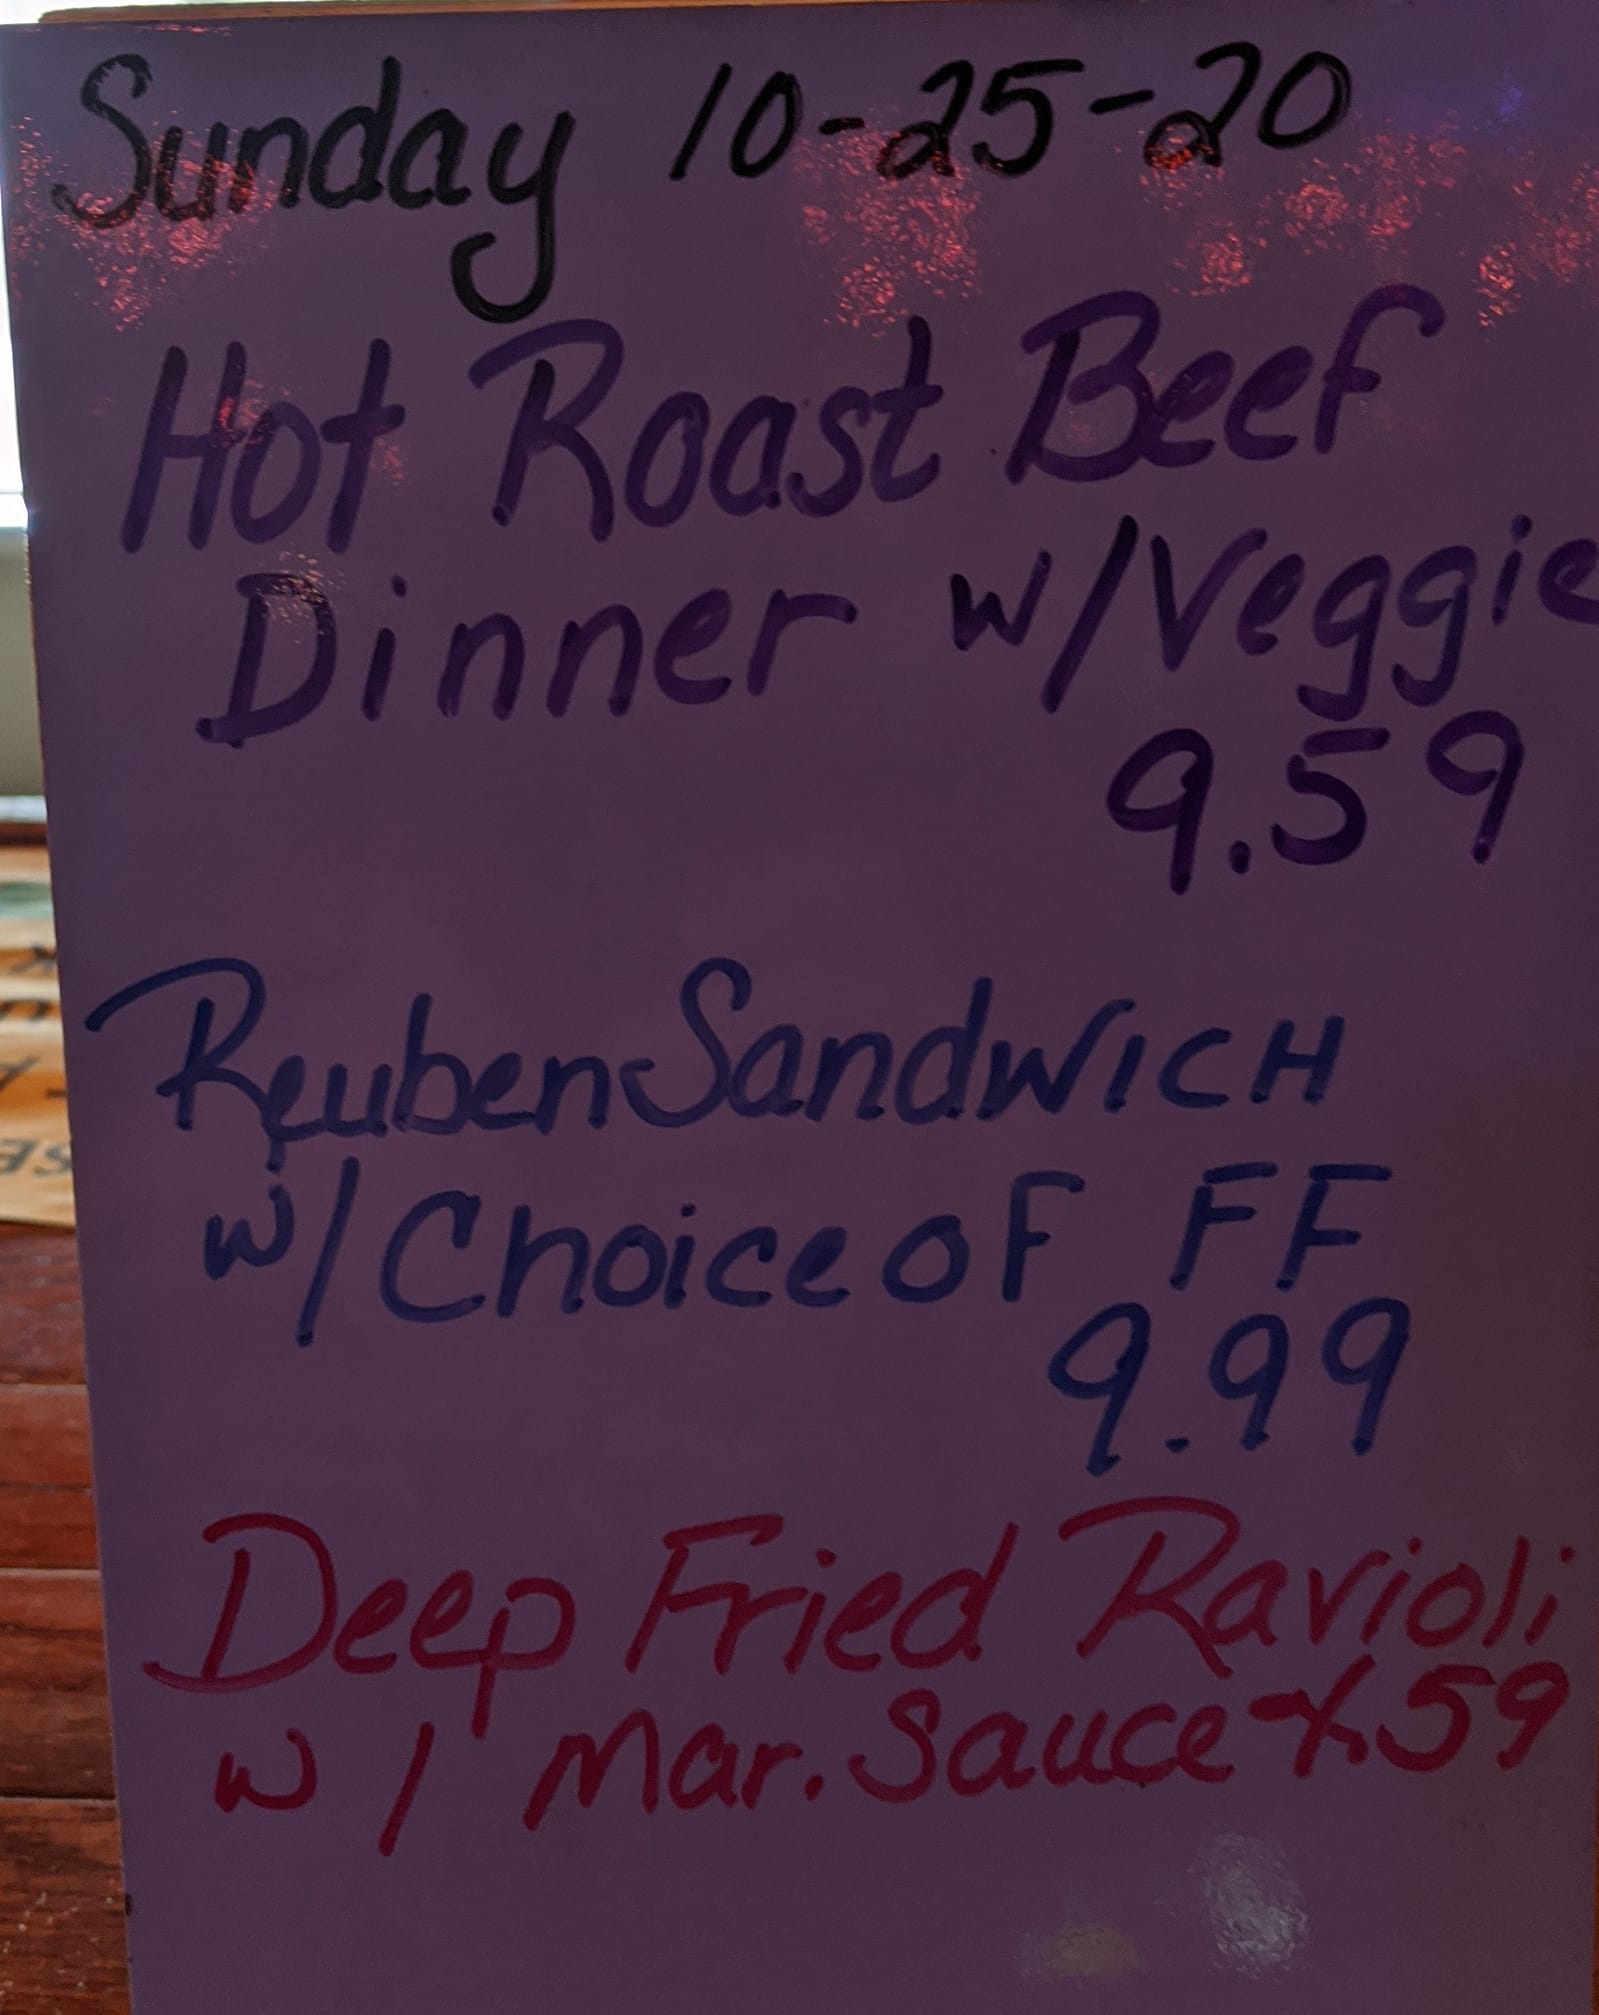 Sunday 10-25-20
Hot Roast Beef
Dinner w/Veggie
9.59
Reuben Sandwich
w/Choice of FF
9.99
Deep Fried Ravioli
w/ Mar. Sauce .59